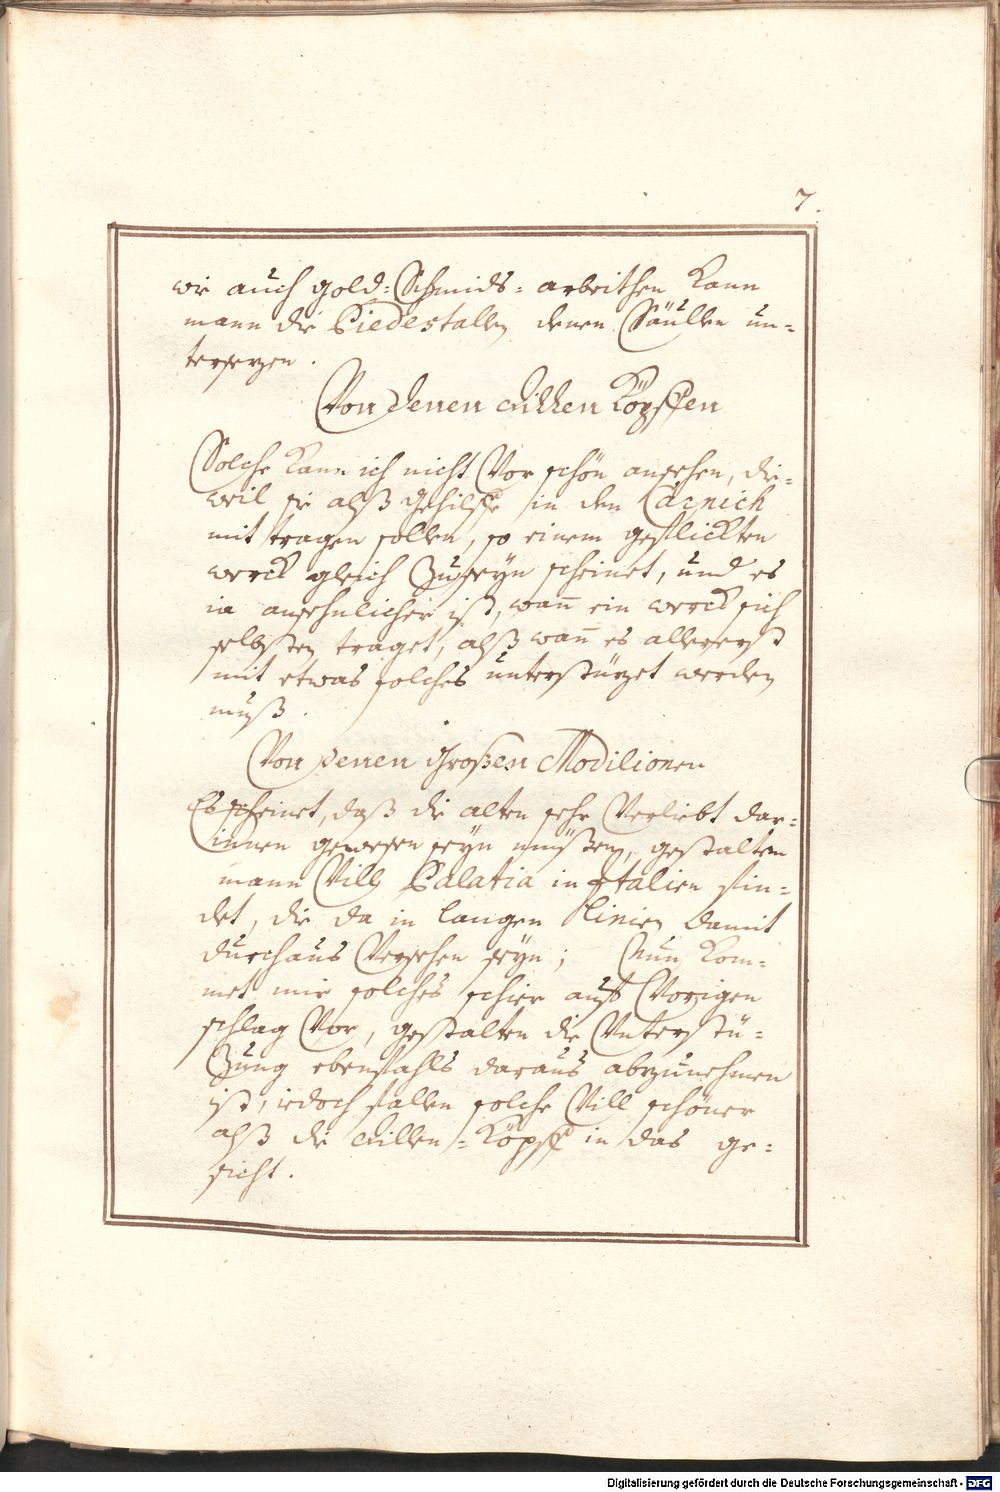 7.
wie auch gold-Schmids-arbeithen Kann
mann die Piedestallen denen Säullen un-
tersezen.
Von denen Dillen Köpffen
Solche Kann ich nicht Vor schön ansehen, die-
weil sie alß gehilffe in den Carnich
mit tragen sollen, so einem geflickten
werck gleich Zuseÿn scheinet, und es
ia ansehnlicher ist, wan̄ ein werck sich
selbsten traget, alß wan̄ es allererst
mit etwas solches unterstüzet werden
muß.
Von denen großen Modilionen
Es scheinet, daß die alten sehr Verliebt dar-
innen gewesen seÿn müßen, gestalten
mann Vill Palatia in Italien fin-
det, die da in langen Linien damit
durchaus Versehen seÿn; Nun Kom-
met mir solches schier auff Vorigen
schlag Vor, gestalten die Unterstü-
Zung ebenfahls daraus abzunehmen
ist, iedoch fallen solche Vill schöner
alß die Dillen-Köpff in das ge-
sicht.
Digitalisierung gefördert durch die Deutsche Forschungsgemeinschaft - DFG